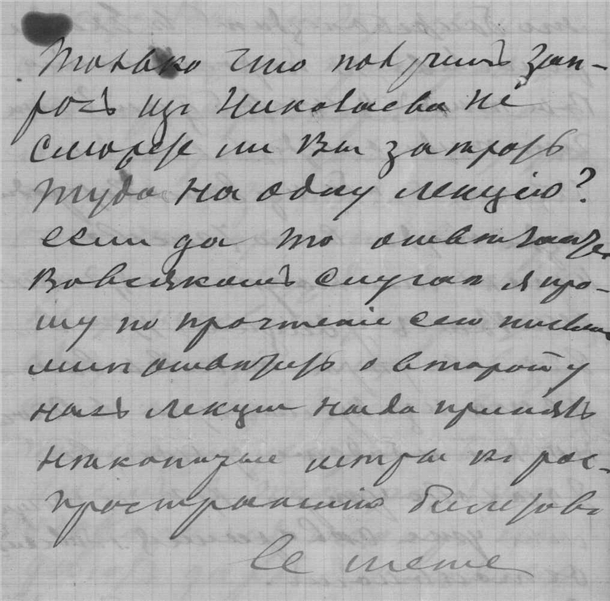 Только что получилъ зап-
росъ изъ Николаева не
сможете ли Вы заѣхать
туда на одну лекцію?
если да то отвѣтьте
Вовсякомъ случаѣ я про-
шу по прочтеніе сего письма
мнѣ отвѣтить о второй у
насъ лекціи надо принять
нѣкоторые мѣры къ рас-
простраенію билетовъ